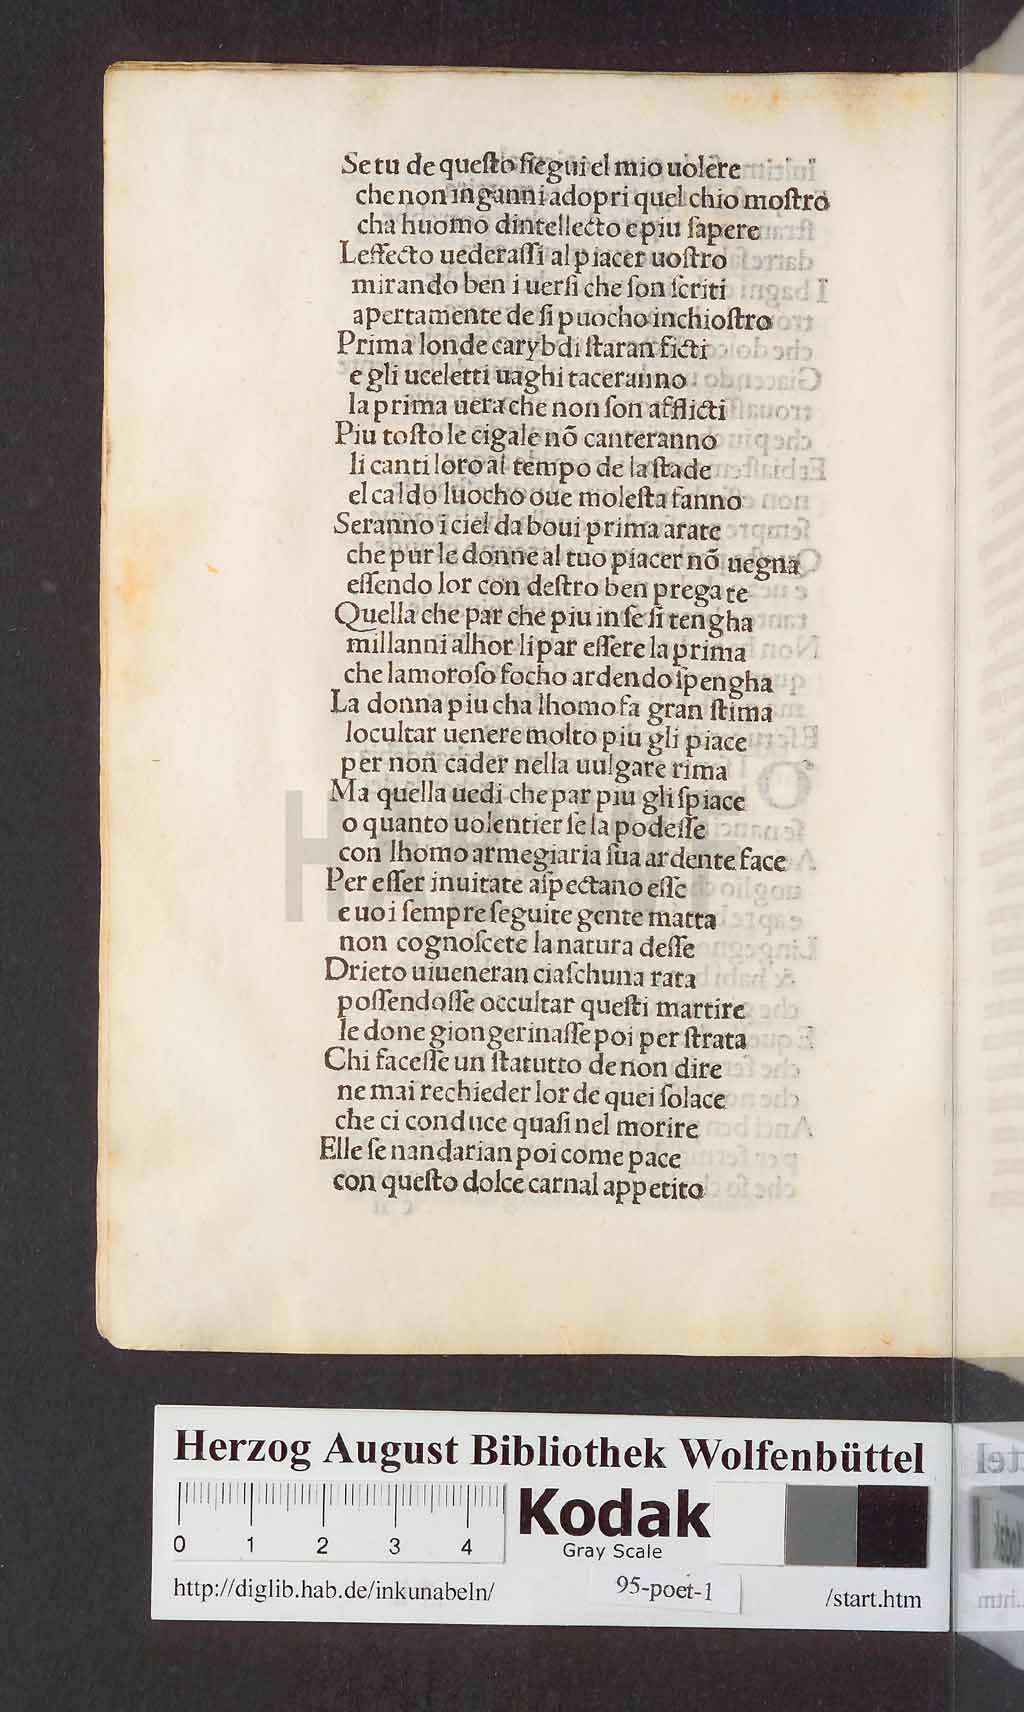 Se tu de queſto ſiegui el mio uolere
che non inganni adopri quel chio moſtro
cha huomo dintellecto e piu ſapere
Leffecto uederaſſi al piacer uoſtro
mirando ben i uerſi che ſon ſcriti
apertamente de ſi puocho inchioſtro
Prima londe carybdi ſtaran ficti
e gli uceletti uaghi taceranno
la prima uera che non ſon afflicti
Piu toſto le cigale nō canteranno
li canti loro al tempo de la ſtade
el caldo luocho oue moleſta fanno
Seranno i ciel da boui prima arate
che pur le donne al tuo piacer nō uegna
eſſendo lor con deſtro ben pregate
Quella che par che piu in ſe ſi tengha
millanni alhor li par eſſere la prima
che lamoroſo focho ardendo ſpengha
La donna piu cha lhomo fa gran ſtima
locultar uenere molto piu gli piace
per non cader nella uulgare rima
Ma quella uedi che par piu gli ſpiace
o quanto uolentier ſe la podeſſe
con lhomo armegiaria ſua ardente face
Per eſſer inuitate aſpectano eſſe
e uoi ſempre ſeguite gente matta
non cognoſcete la natura deſſe
Drieto uiueneran ciaſchuna rata
poſſendoſſe occultar queſti martire
le done giongerinaſſe poi per ſtrata
Chi faceſſe un ſtatutto de non dire
ne mai rechieder lor de quei ſolace
che ci conduce quaſi nel morire
Elle ſe nandarian poi come pace
con queſto dolce carnal appetito
HAB WF
Herzog August Bibliothek Wolfenbüttel
0 1 2 3 4
Kodak
Gray Scale
http://diglib.hab.de/inkunabeln/ 95-poet-1 /start.htm